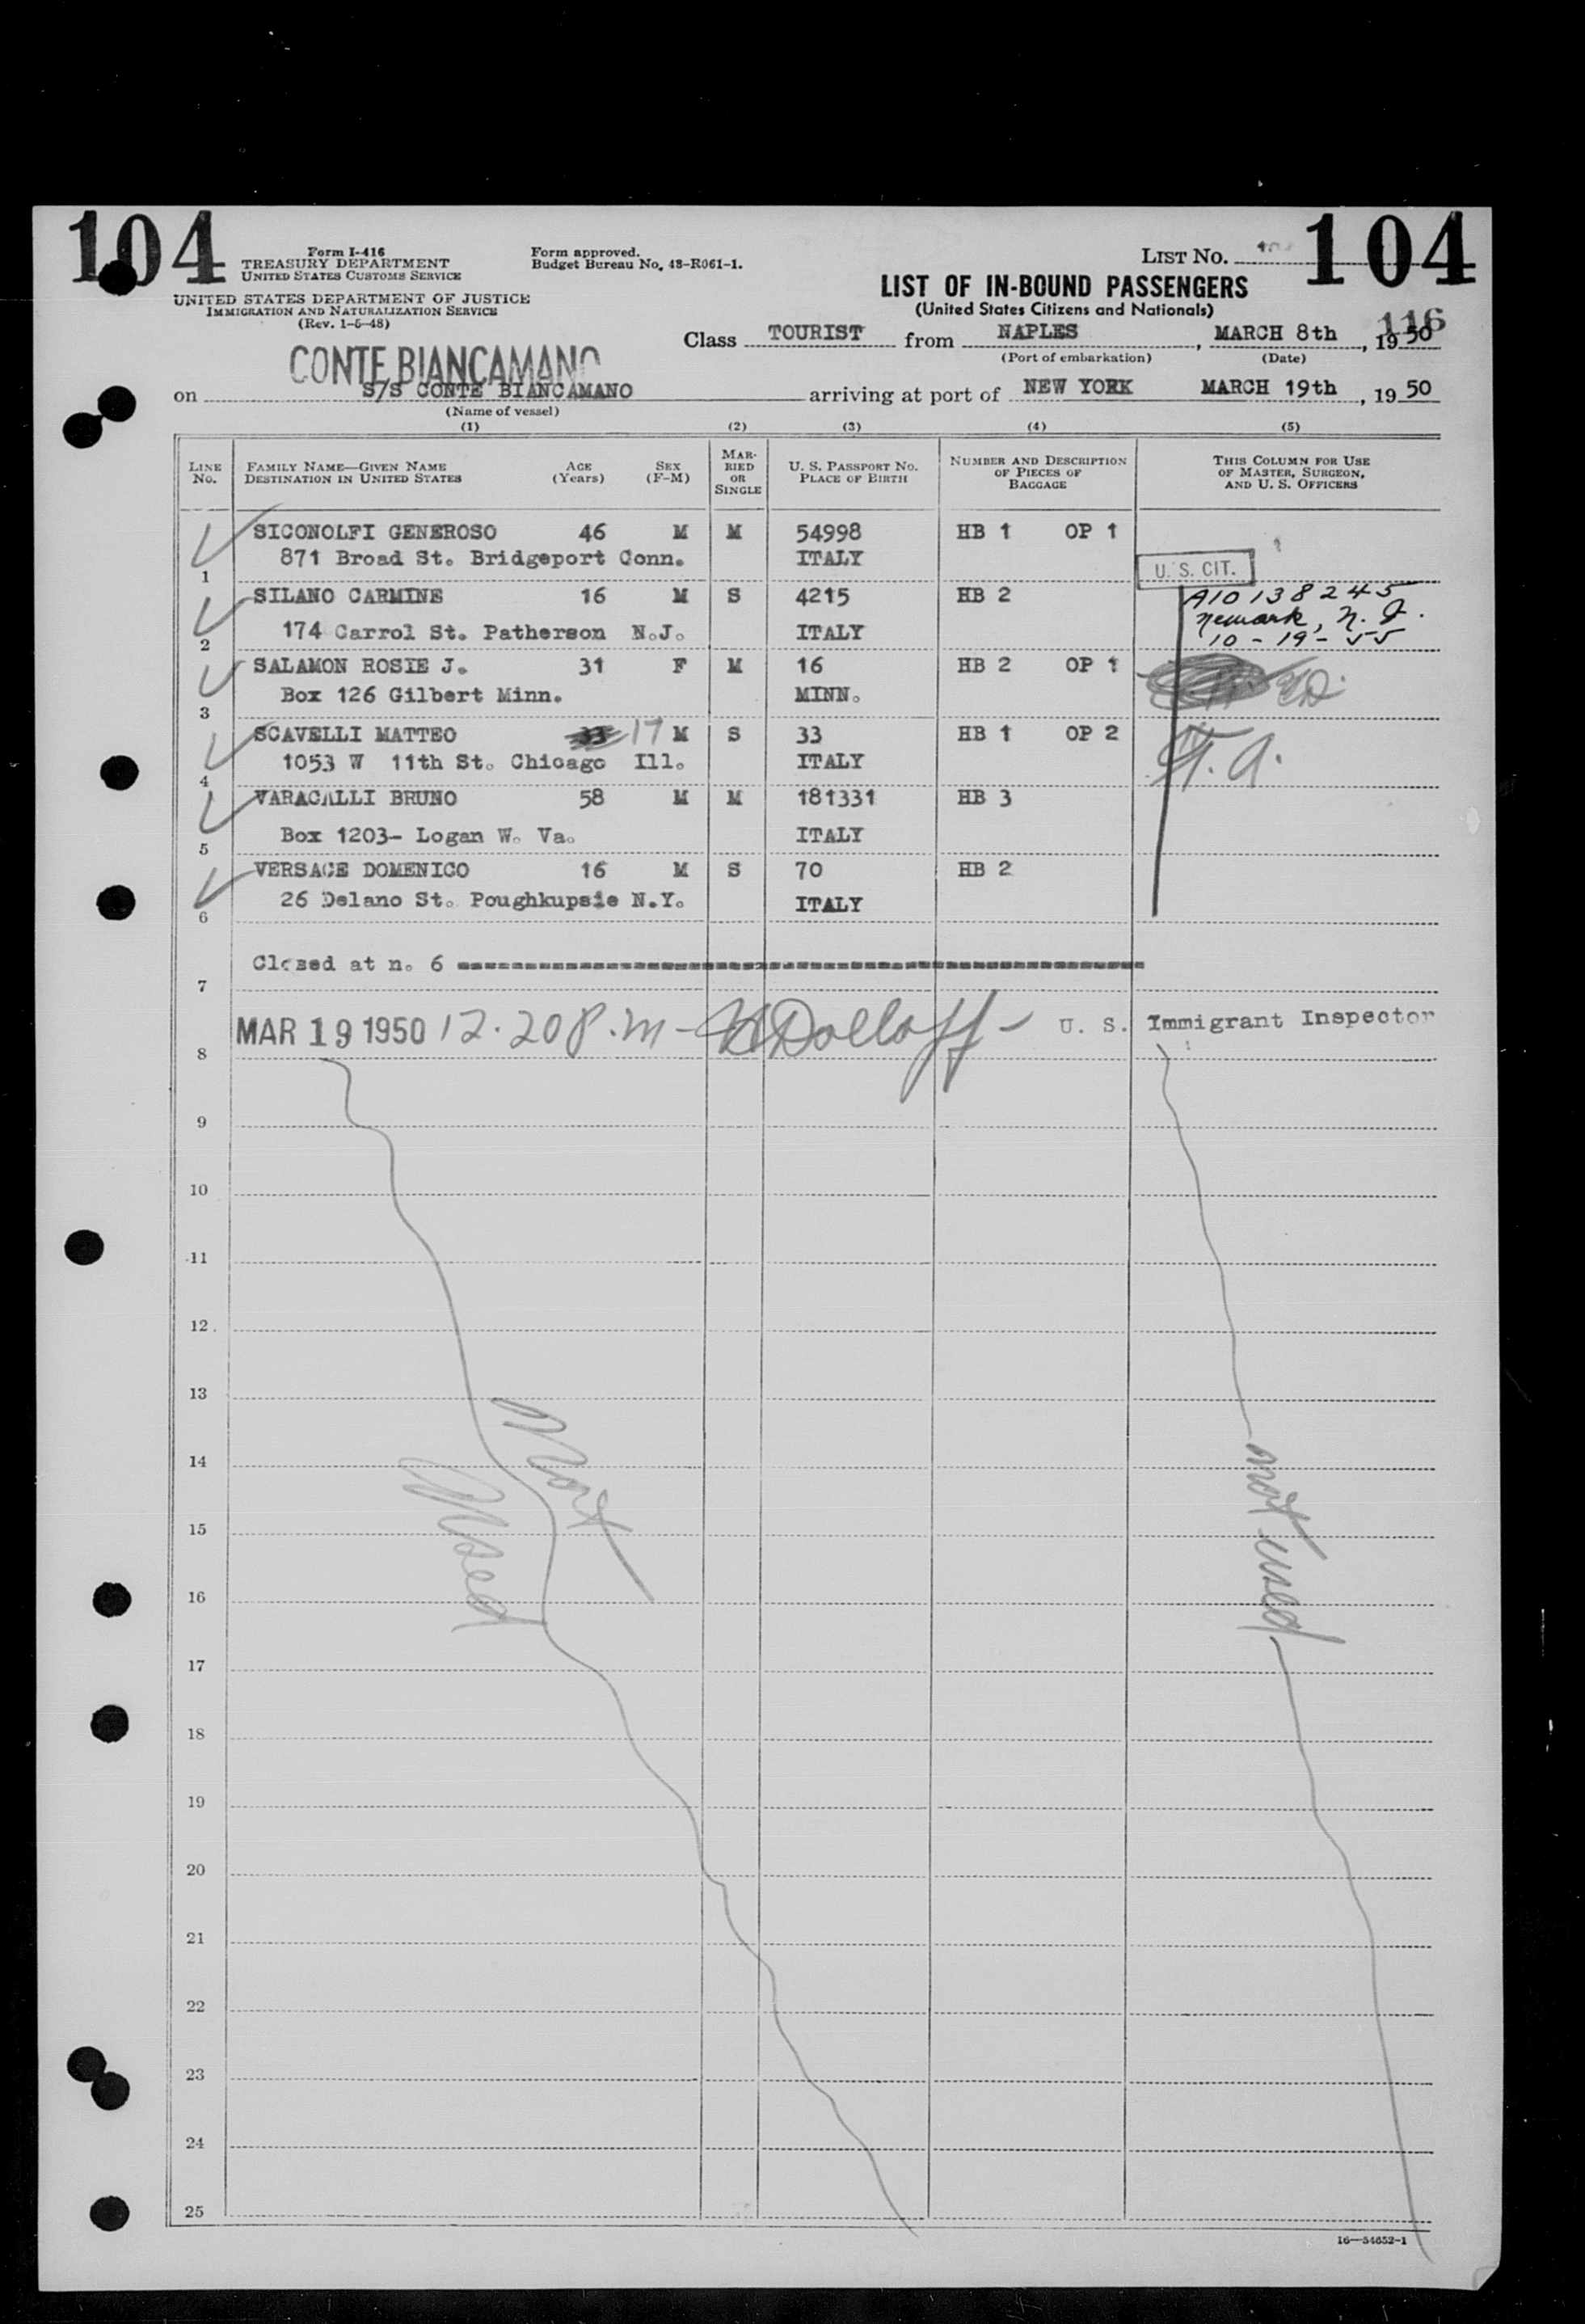 104
104
Form I-416
TREASURY DEPARTMENT
UNITED STATES CUSTOMS SERVICE
UNITED STATES DEPARTMENT OF JUSTICE
IMMIGRATION AND NATURALIZATION SERVICE
(Rev. 1-5-48)
Form approved.
Budget Bureau No. 43-R061-1.
LIST NO.
LIST OF IN-BOUND PASSENGERS
(United States Citizens and Nationals)
116
Class TOURIST from NAPLES, MARCH 8th, 1950
(Port of embarkation) (Date)
CONTE BIANCAMANO
on S/S CONTE BIANCAMANO arriving at port of NEW YORK MARCH 19th, 1950
(Name of vessel)
(1) (2) (3) (4) (5)
LINE NO.
FAMILY NAME—GIVEN NAME
DESTINATION IN UNITED STATES
AGE (Years)
SEX (F-M)
MARRIED OR SINGLE
U. S. PASSPORT NO.
PLACE OF BIRTH
NUMBER AND DESCRIPTION OF PIECES OF BAGGAGE
THIS COLUMN FOR USE OF MASTER, SURGEON, AND U. S. OFFICERS
SICONOLFI GENEROSO 46 M M 54998 HB 1 OP 1
1 871 Broad St. Bridgeport Conn. ITALY
U. S. CIT.
SILANO CARMINE 16 M S 4215 HB 2 A10138245
2 174 Carrol St. Patherson N.J. ITALY Newark, N. J.
10-19-55
SALAMON ROSIE J. 31 F M 16 HB 2 OP 1
3 Box 126 Gilbert Minn. MINN.
SCAVELLI MATTEO 33 17 M S 33 HB 1 OP 2
4 1053 W 11th St. Chicago Ill. ITALY
VARACALLI BRUNO 58 M M 181331 HB 3
5 Box 1203- Logan W. Va. ITALY
VERSACE DOMENICO 16 M S 70 HB 2
6 26 Delano St. Poughkupsie N.Y. ITALY
Closed at n. 6
7
MAR 19 1950 12.20 P.M - Dolloff - U. S. Immigrant Inspector
8
9
10
11
12
13
14
15
16
17
18
19
20
21
22
23
24
25
Not used
not used
16—54652-1